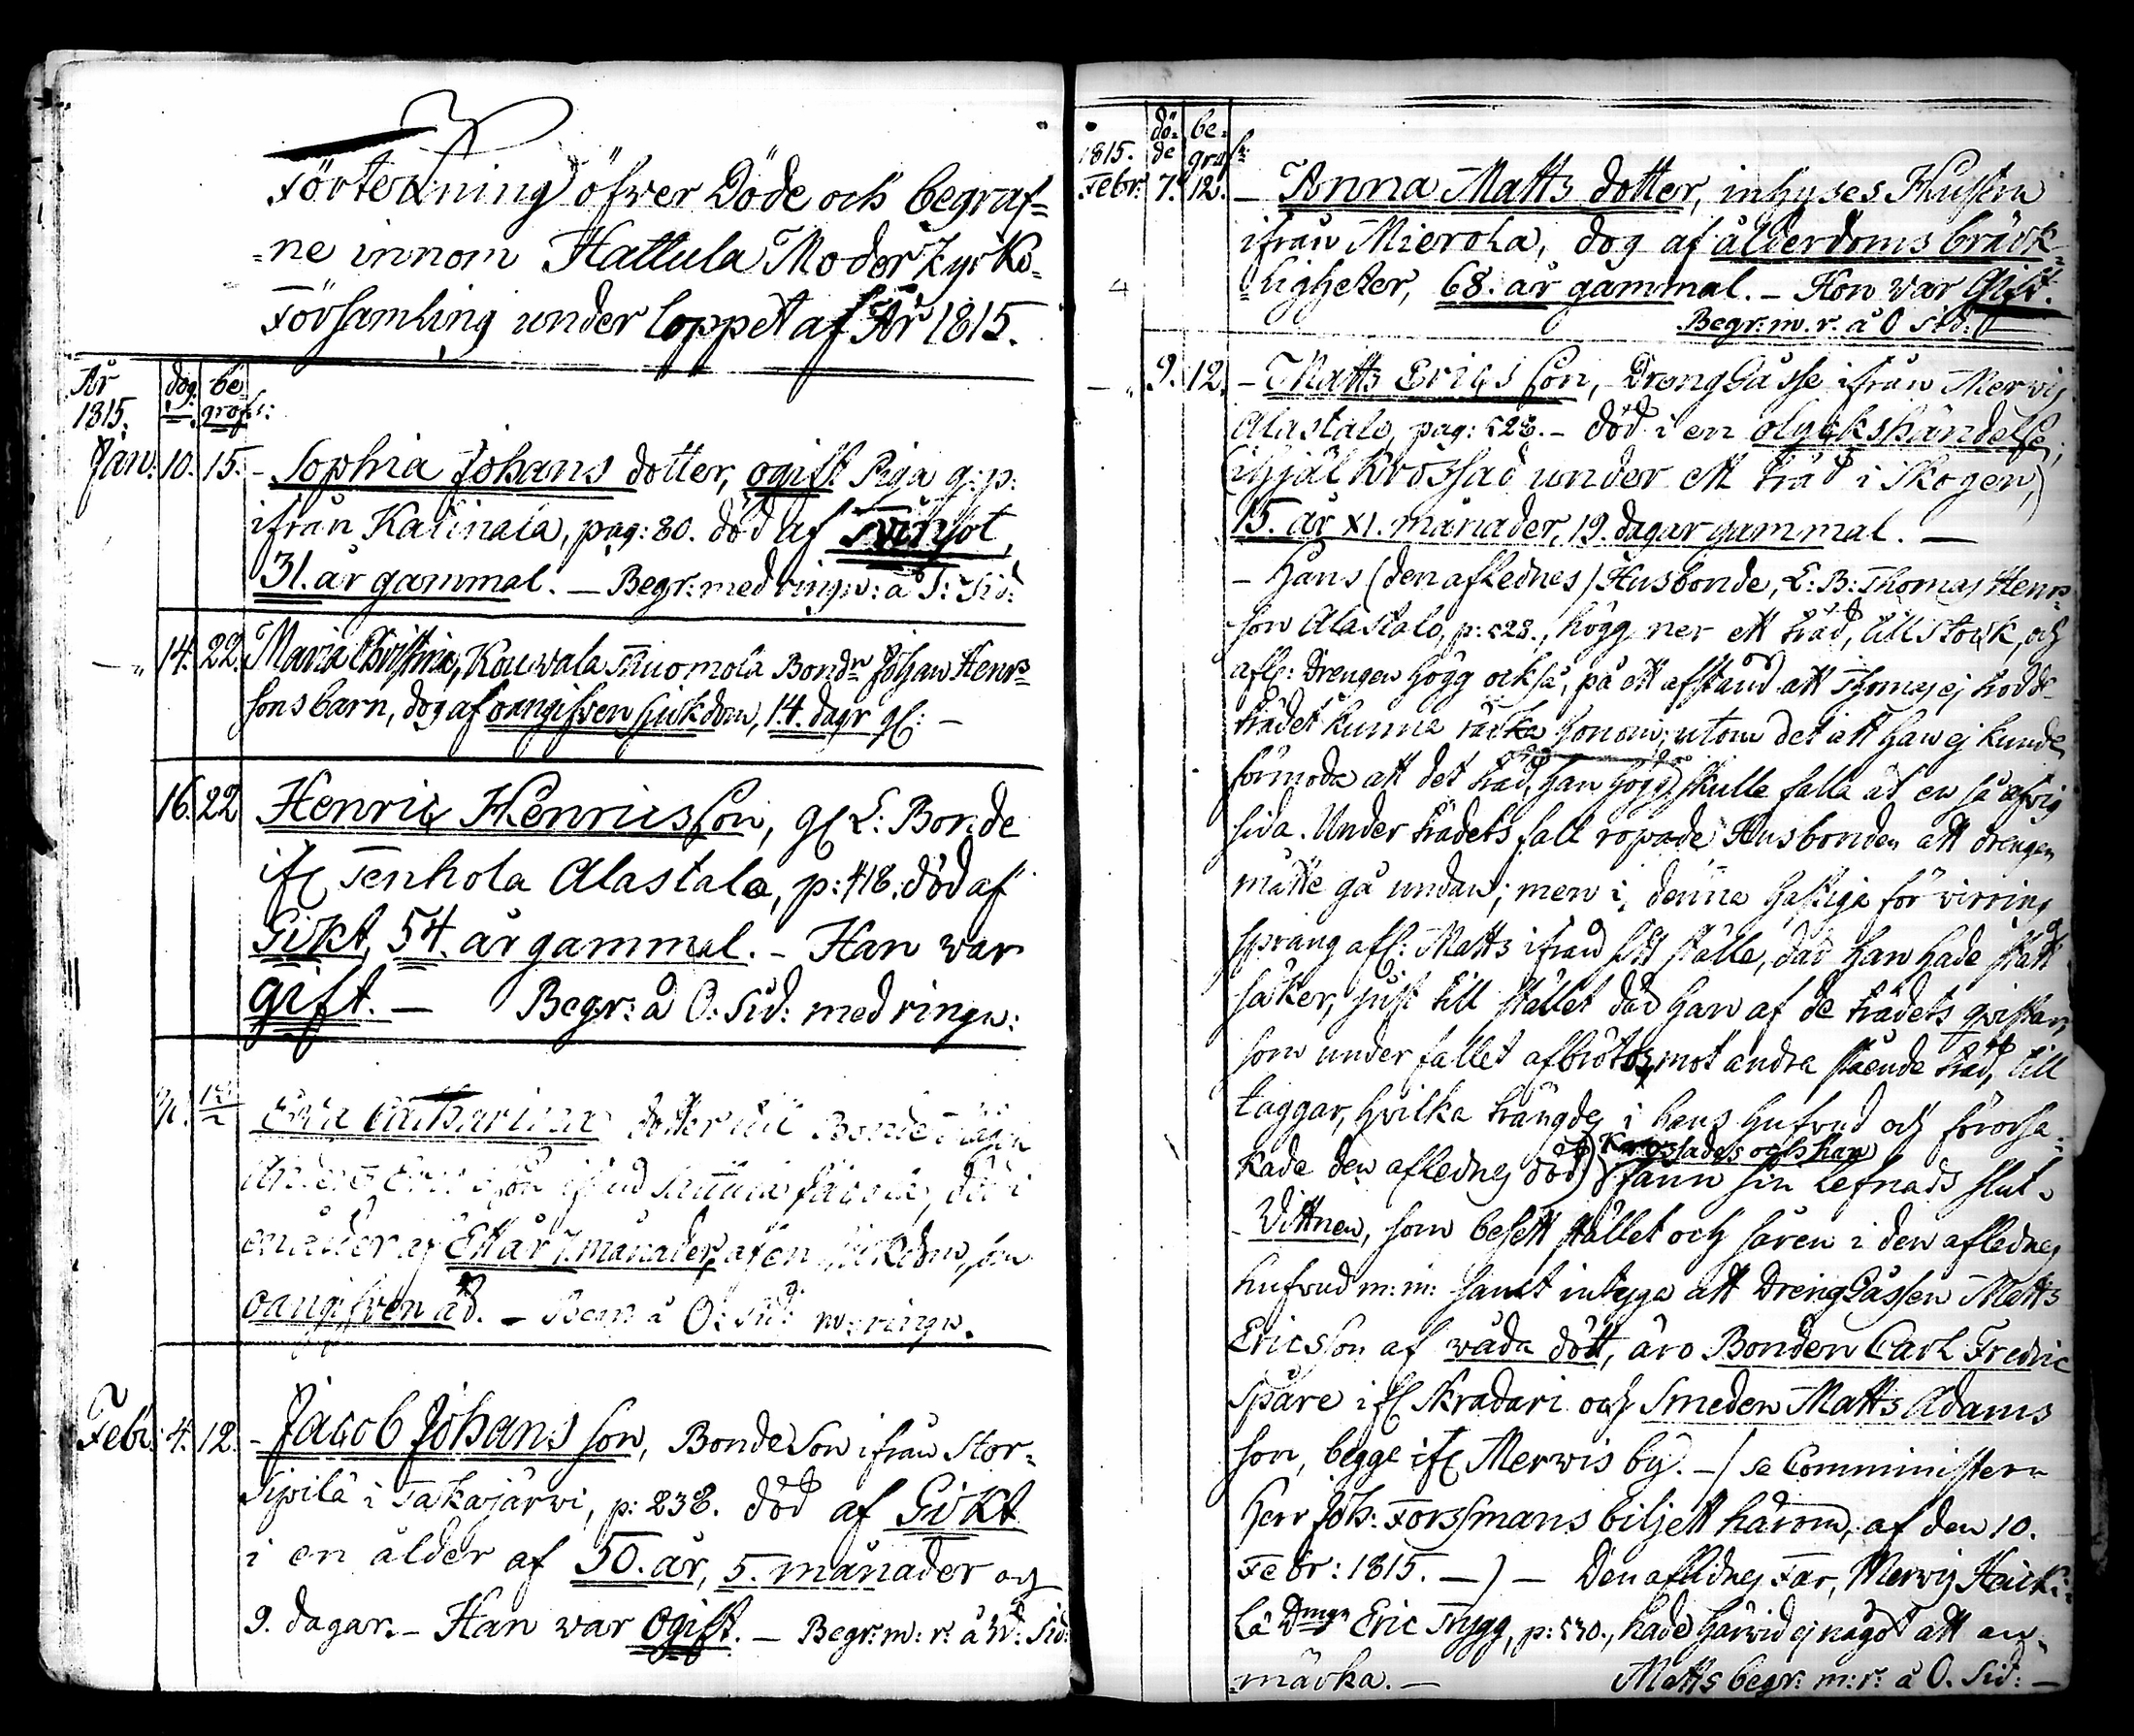 Förteckning öfwer Döde och begraf=
=ne innom Hattula Moder Kyrko=
Församling under loppet af År 1815.
År 1815. dög: be grafs:
Jan: 10. 15. - Sophia Johans dotter, ogift Piga g: p:
ifrån Katinala, pag: 80. död af Twinsot,
31. år gammal. — Begr: med ringn: å S: Sid:
— " 14. 22. Maria Christina, Kouwala Tuomola Bondn Johan Henrs=
sons barn, dog af oangifwen sjukdom, 14. dagr gl: —
16. 22 Henric Henricsson, gl L: Bonde
ifl Tenhola Alastalo, p: 418. död af
Gikt, 54. år gammal. - Han war
gift. — Begr: å O: Sid: med ringn:
Catharina dotter till Bonde
ifrån död i
en ålder af Ett år 7. månader, af en
oangifwen - å O: Sid: m: ringn.
Febr: 4. 12. - Jacob Johans son, Bonde Son ifrån Stor=
Sipilä i Takajärwi, p: 238. död af Gikt
i en ålder af 50. år, 5. månader och
9. dagar. - Han war Ogift. — Begr: m: r: å W: Sid:
1815. dö= de be= grafs:
Febr: 7. 12. — Anna Matts dotter, inhyses Hustru
ifrån Mierola, dog af ålderdoms bräck=
=ligheter, 68. år gammal. - Hon war Gift.
Begr: m. r. å O Sid:
— " 9. 12. - Matts Erics son, Dreng Gåsse ifrån Merwis
Alastalo, pag: 528. - död i en olyckshändelse,
(ihjälkrossad under ett träd i Skogen,)
15. år XI. månader, 19. dagar gammal. —
- Hans (den aflednes) Husbonde, L: B: Thomas Henrs=
son Alastalo, p: 528., högg ner ett träd, till stock, och
afl: Drengen högg också, på ett afstånd att Thomas ej trodde
trädet kunna räcka honom; utom det att han ej kunde
förmoda att det träd, han högg, skulle falla åt en så afwig
sida. Under trädets fall ropade Husbonden att drengen
måtte gå undan; men i denna hastiga förwirring
sprang afl: Matts ifrån sitt ställe, där han hade stått
säker, just till stället där han af de trädets qwistar,
som under fallet afbrötos mot andra stående träd, till
taggar, hwilka trängdes i hans hufwud och förorsa=
krossades och han
kade den aflednes död) fann sin lefnads slut.
- Wittnen, som besett stället och såren i den aflednes
hufwud m: m: samt intyga att Dreng Gåssen Matts
Ericsson af wåda dött, äro Bonden Carl Fredric
Spåre ifl Skradari och Smeden Matts Adams
son, begge ifl Merwis by. - (se Comministern
Herr Joh: Forssmans biljett härom, af den 10.
Febr: 1815. —) — Den aflidnes Far, Merwis Heick=
lä Eric Trygg, p: 530., hade härwid ej något att an=
märka. — Matts begr: m: r: å O. Sid: —